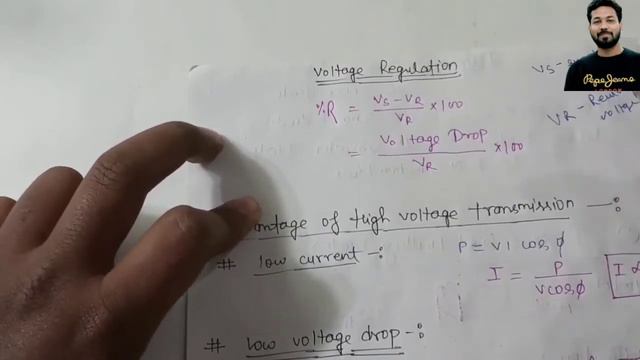 Voltage Regulation
%R = (VS - VR) / VR × 100
= Voltage Drop / VR × 100
VS -
VR -
Pepe Jeans
of High voltage transmission -:
# low current -:
P = VI cosφ
I = P / V cosφ
I α
# low voltage drop -: